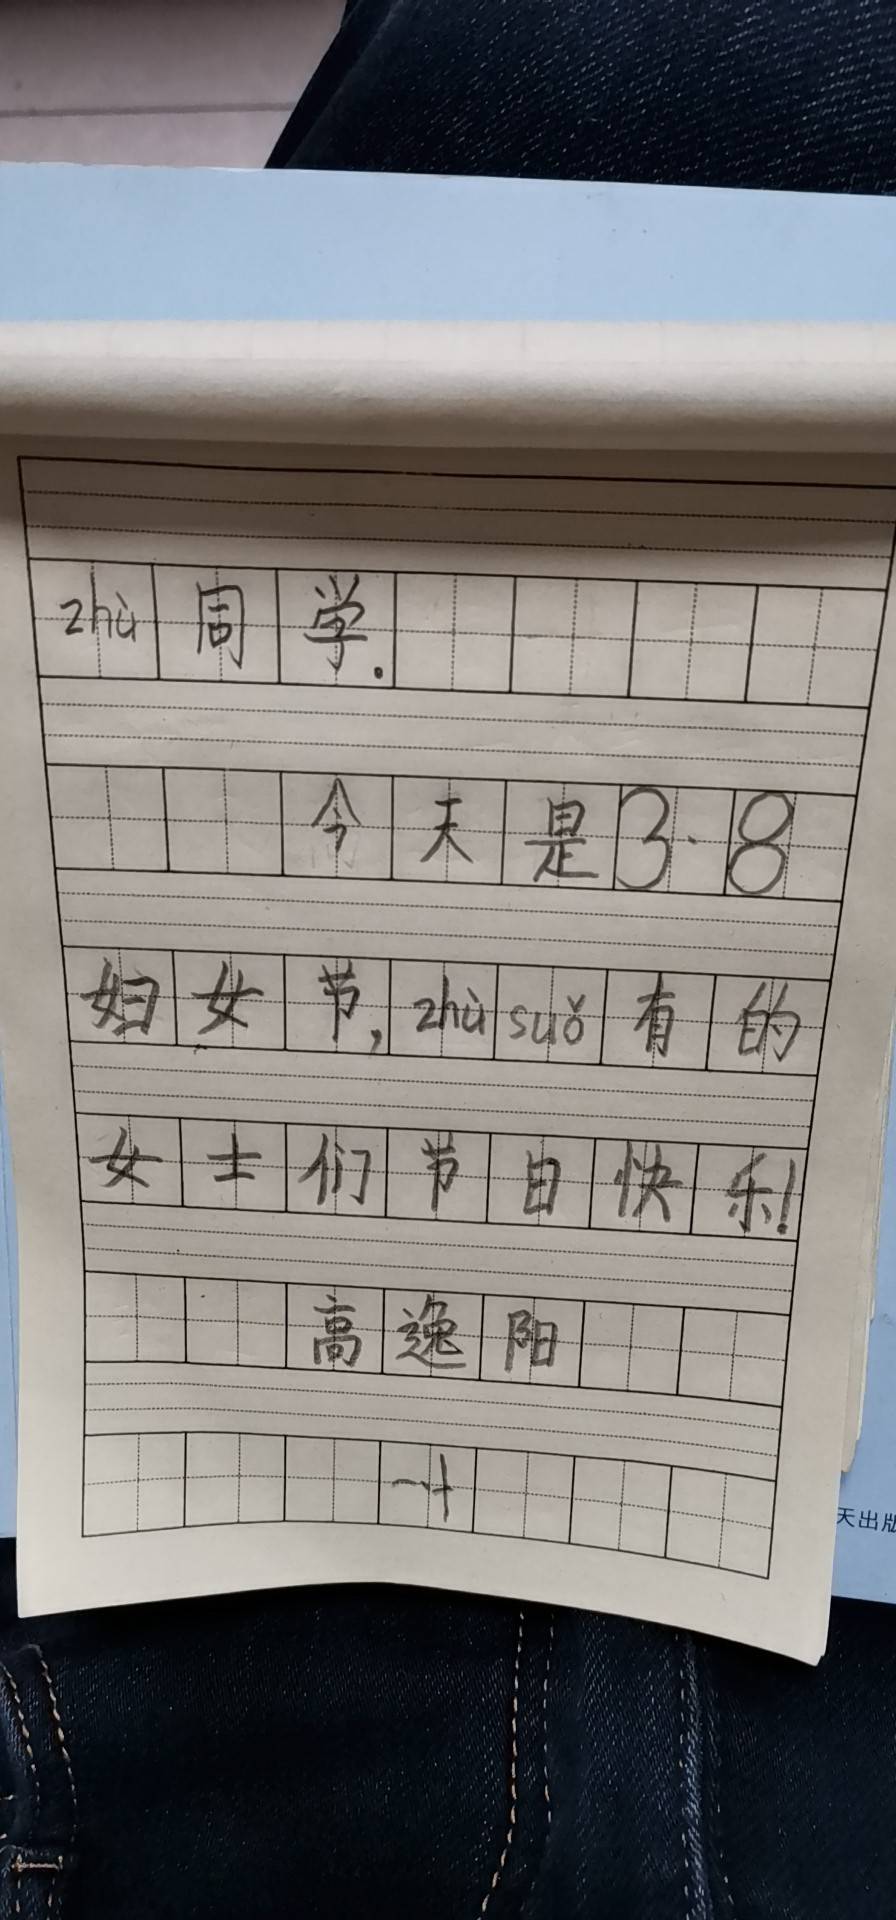 zhù同学.
今天是3·8
妇女节,zhùsuǒ有的
女士们节日快乐!
高逸阳
天出版